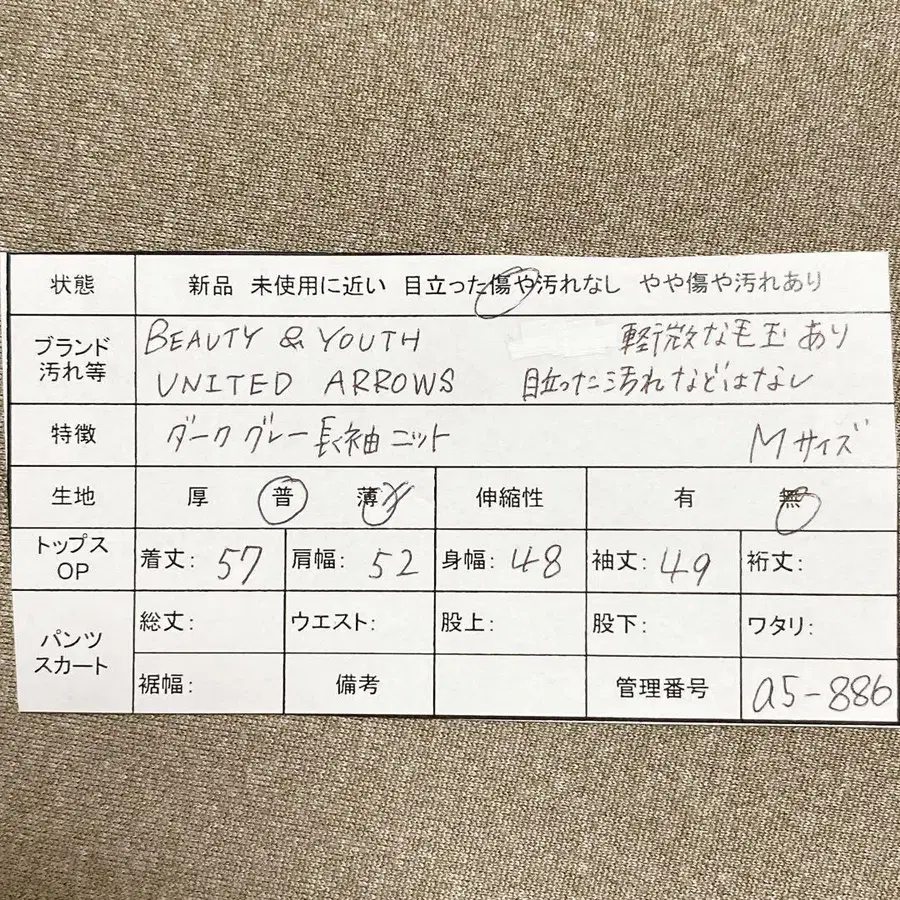 状態 新品 未使用に近い 目立った傷や汚れなし やや傷や汚れあり
ブランド 汚れ等 BEAUTY & YOUTH 軽微な毛玉あり
UNITED ARROWS 目立った汚れなどはなし
特徴 ダークグレー長袖ニット Mサイズ
生地 厚 普 薄 伸縮性 有 無
トップス OP 着丈: 57 肩幅: 52 身幅: 48 袖丈: 49 裄丈:
パンツ スカート 総丈: ウエスト: 股上: 股下: ワタリ:
裾幅: 備考 管理番号 a5-886